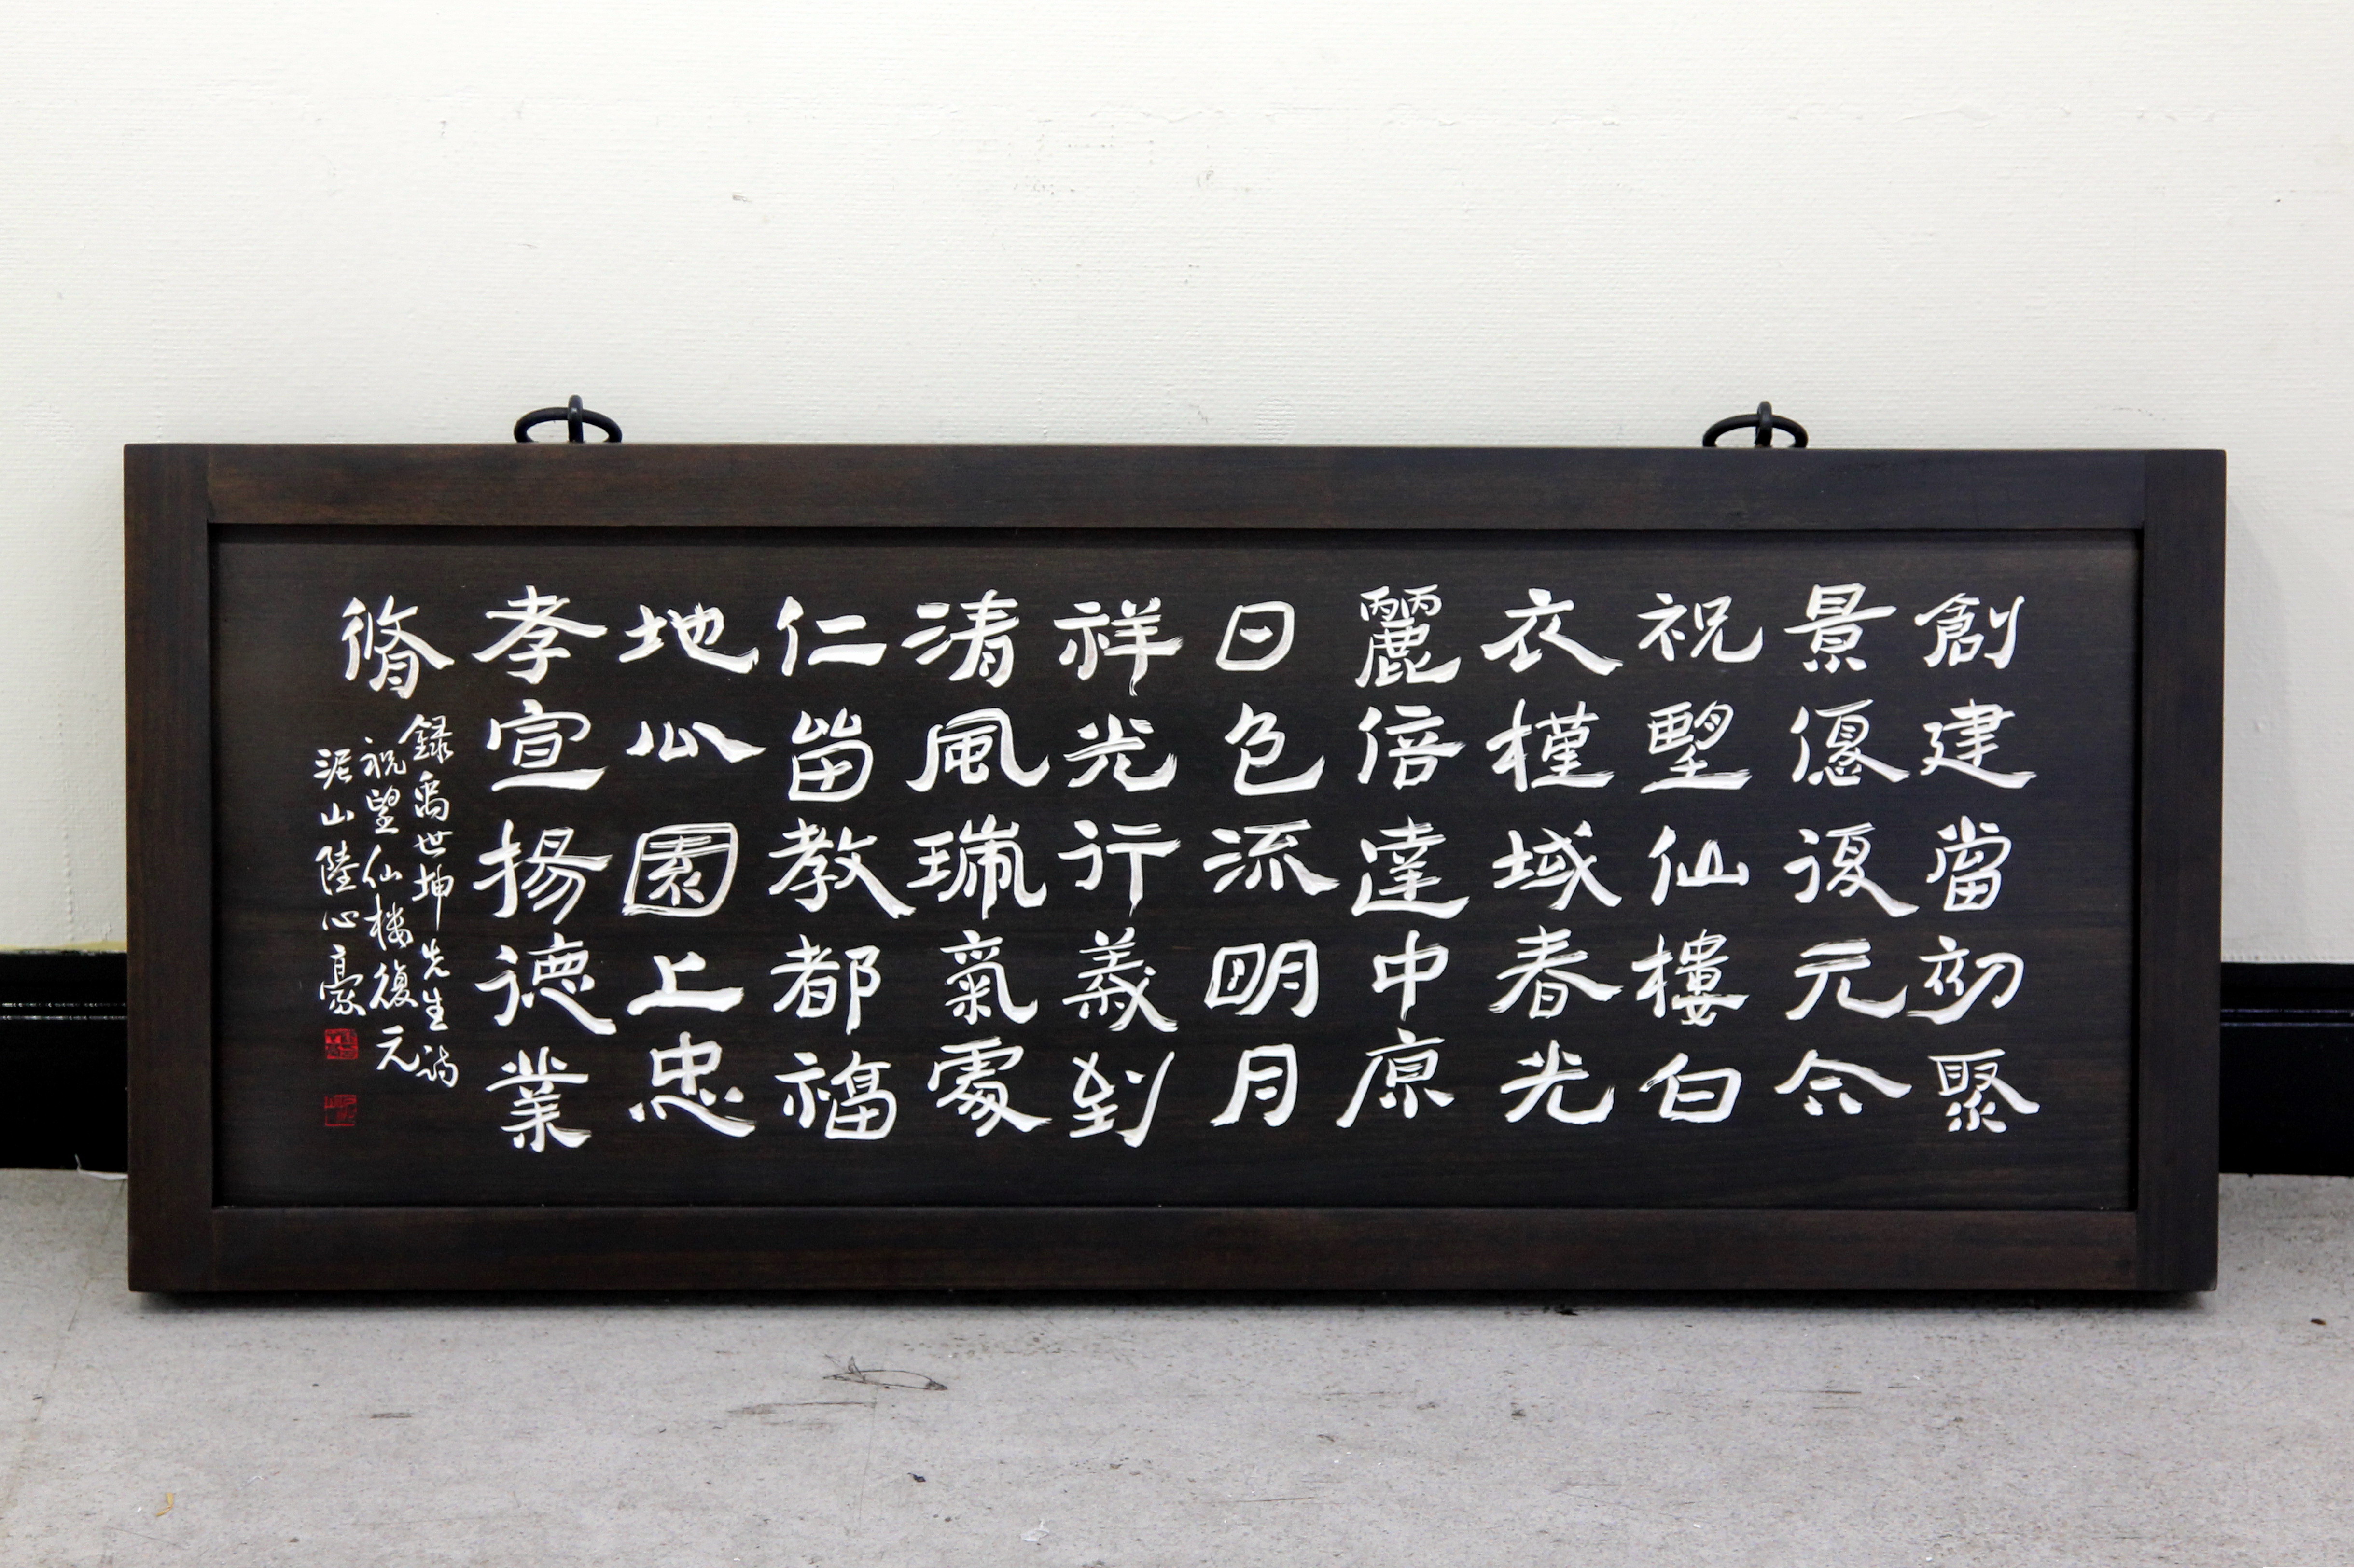 創建當初聚
景優復元今
祝望仙樓白
衣槿域春光
麗倍達中原
日色流明月
祥光行義到
清風瑞氣處
仁留教都福
地心園上忠
孝宣揚德業
脩
錄禹世坤先生詩
祝望仙楼復元
泥山陸心豪